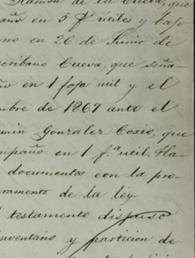 Ramón de la Cueva, que
en 5 f. útiles y bajo
en 26 de Junio de
Escribano Cueva, que seña
en 1 foja util y el
mbre de 1867 ante el
min Gonzalez Cosio, que
mpaño en 1 f.ª util. Ha
documentos con la pro
ramento de la ley.
testamento dispuso
inventario y particion de